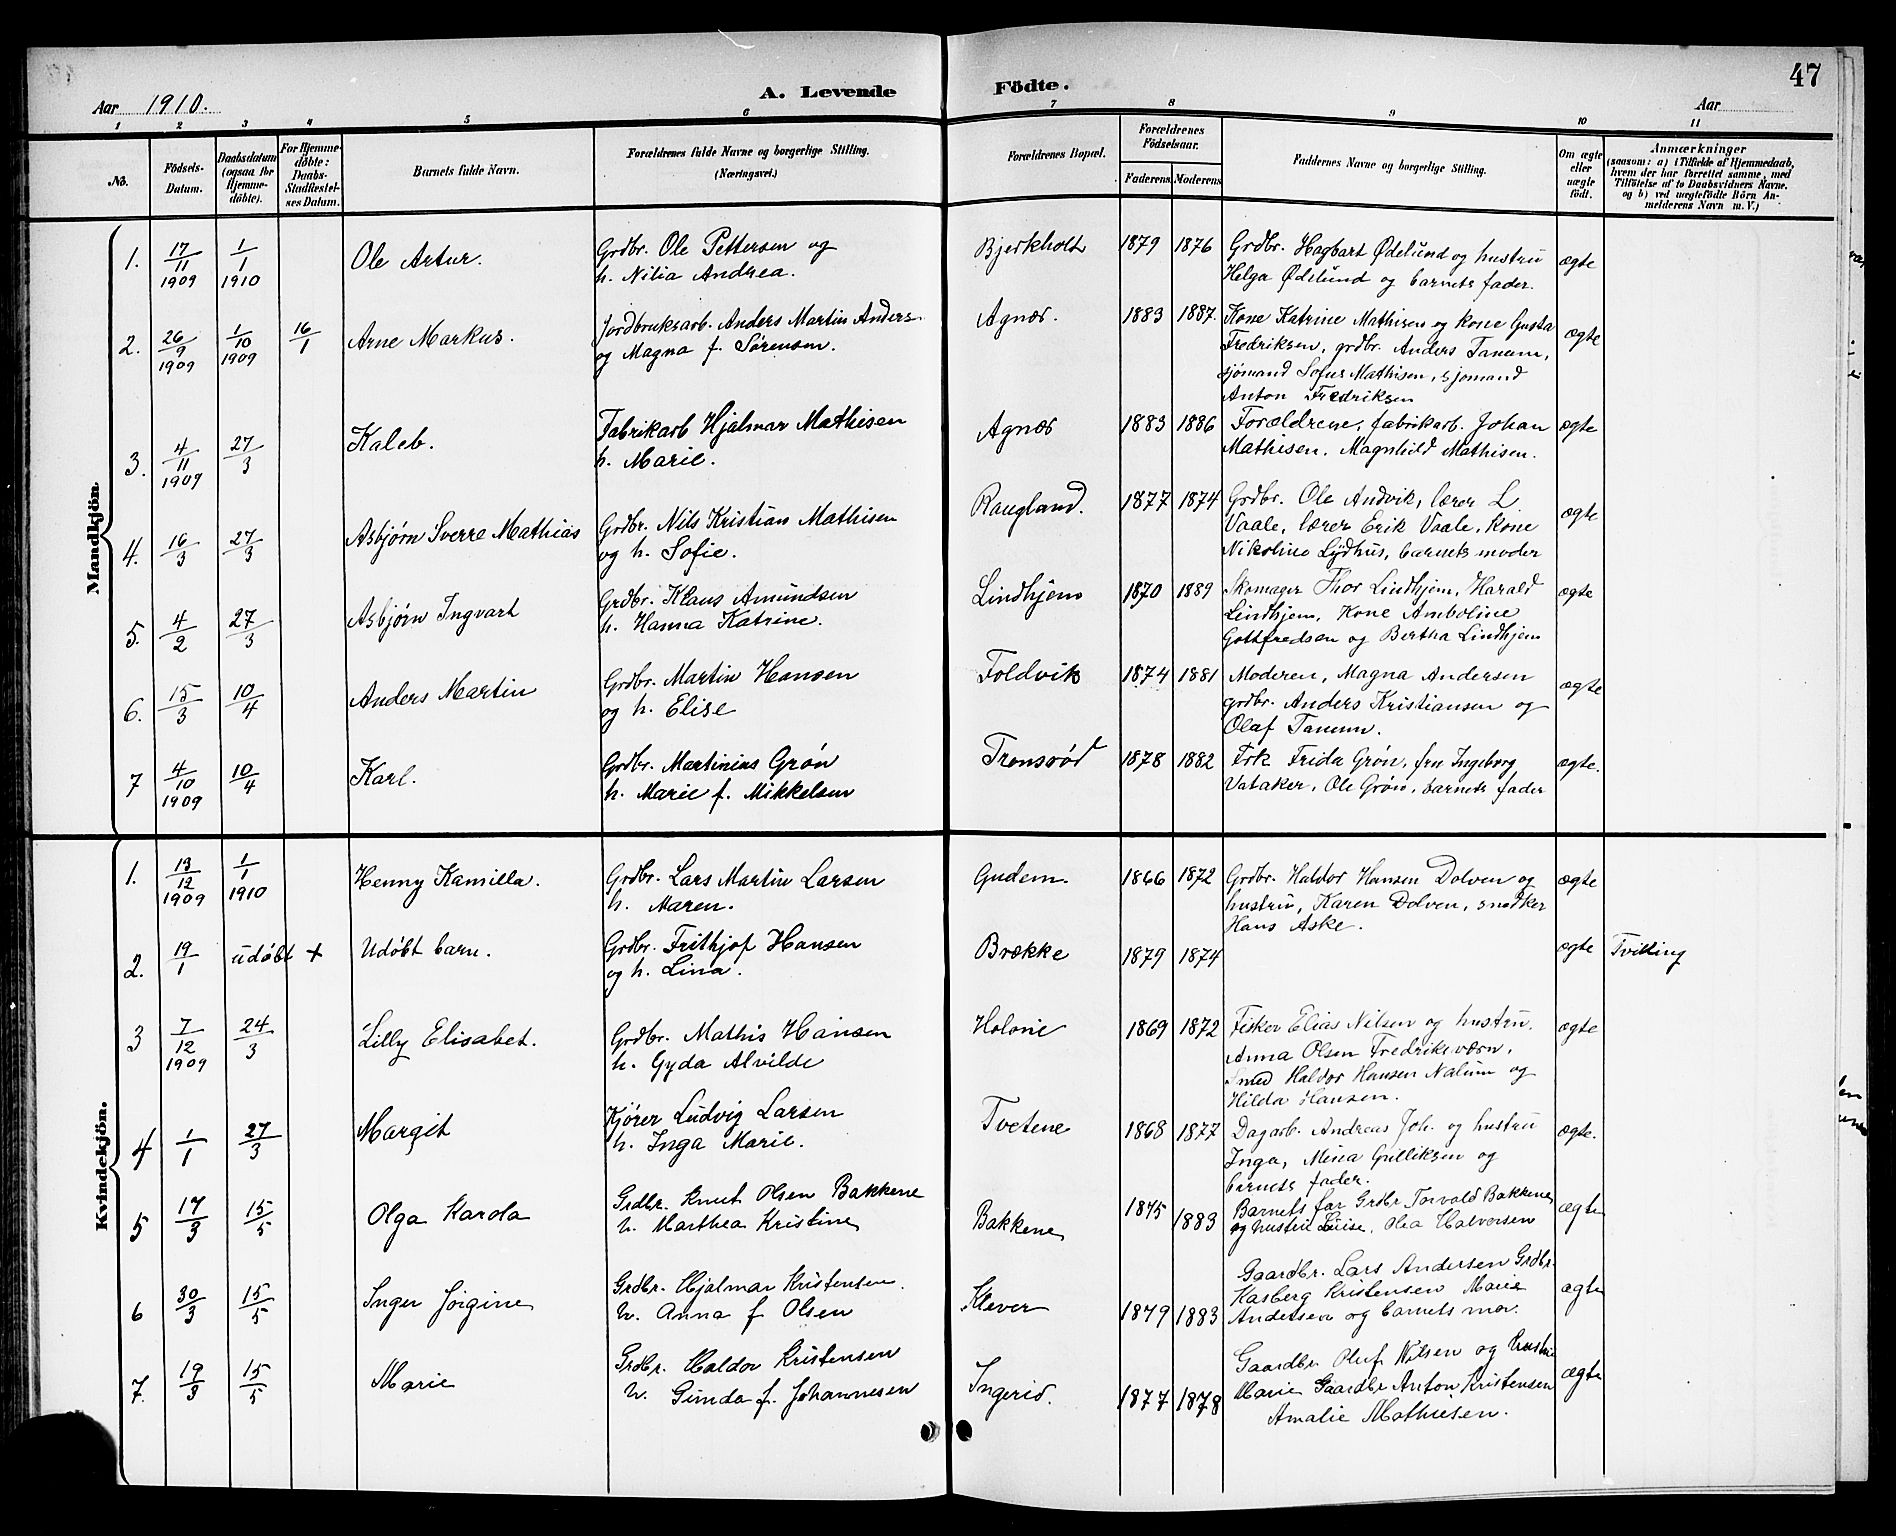 47
Aar 1910. A. Levende Födte. Aar
1 2 3 4 5 6 7 8 9 10 11
No.
Födsels-
Datum.
Daabsdatum
(ogsaa for
Hjemme-
döbte).
For Hjemme-
döbte:
Daabs-
Stadfæstel-
ses Datum.
Barnets fulde Navn.
Forældrenes fulde Navne og borgerlige Stilling.
(Næringsvei.)
Forældrenes Bopæl.
Forældrenes
Födselsaar.
Faderens. Moderens.
Faddernes Navne og borgerlige Stilling.
Om ægte
eller
uægte
født.
Anmærkninger
(saasom: a) i Tilfælde af Hjemmedaab,
hvem der har forrettet samme, med
Tilföielse af to Daabsvidners Navne.
og b) ved uægtefödte Börn An-
melderens Navn m. V.)
Mandkjön.
1. 17/11 1909 1/1 1910 Ole Artur.
Grdbr. Ole Pettersen og
h. Nilia Andrea.
Bjerkholt 1879 1876
Grdbr. Hagbart Ødelund og hustru
Helga Ødelund og barnets fader.
ægte
2. 26/9 1909 1/10 1909 16/1 Arne Markus.
Jordbruksarb. Anders Martin Anders.
og Magna f. Sørensen.
Agnæs. 1883 1887.
Kone Katrine Mathisen og kone Gusta
Fredriksen, grdbr. Anders Tanum,
sjømand Sofus Mathisen, sjømand
Anton Fredriksen
ægte
3. 4/11 1909 27/3 Kaleb.
Fabrikarb Hjalmar Mathisen
h. Marie.
Agnæs 1883 1886
Forældrene, fabrikarb. Johan
Mathisen. Magnhild Mathisen.
ægte
4. 16/3 27/3 Asbjørn Sverre Mathias
Grdbr. Nils Kristian Mathisen
og h. Sofie.
Raugland. 1877 1874
Grdbr. Ole Andvik, lærer L.
Vaale, lærer Erik Vaale, kone
Nikoline Lydhus, barnets moder
ægte
5. 4/2 27/3 Asbjørn Ingvart
Grdbr. Klaus Amundsen
h. Hanna Katrine.
Lindhjem 1870 1889
Skomager Thor Lindhjem, Harald
Lindhjem, Kone Amboline
Gottfredsen og Bertha Lindhjem
ægte
6. 15/3 10/4 Anders Martin
Grdbr. Martin Hansen
og h. Elise
Foldvik 1874 1881
Moderen, Magna Andersen
grdbr. Anders Kristiansen og
Olaf Tanum.
ægte
7 4/10 1909 10/4 Karl.
Grdbr. Martinius Grøn
h. Marie f. Mikkelsen
Tronsrød 1878 1882
Frk Frida Grøn, fru Ingeborg
Vataker, Ole Grøn, barnets fader
ægte.
Kvindekjön.
1. 13/12 1909 1/1 1910 Henny Kamilla.
Grdbr. Lars Martin Larsen
h. Maren.
Gudem. 1866 1872
Grdbr. Haldor Hansen Dolven og
hustru, Karen Dolven, snedker
Hans Aske.
ægte
2. 19/1 udøbt + Udøbt barn.
Grdbr. Frithjof Hansen
og h. Lina.
Brække 1879 1874
ægte Tvilling
3 7/12 1909 24/3 Lilly Elisabet.
Grdbr. Mathis Hansen
h. Gyda Alvilde
Holonie 1869 1872
Fisker Elias Nilsen og hustru.
Anna Olsen Fredriksværn.
Smed Haldor Hansen Nalum og
Hilda Hansen.
ægte
4 1/1 27/3 Margit
Kjører Ludvig Larsen
h. Inga Marie.
Tvetene 1868 1877
Dagarb. Andreas Joh. og hustru
Inga, Mina Gulliksen og
barnets fader.
ægte.
5 17/3 15/5 Olga Karola
Grdbr. Knut Olsen Bakkene
h. Marthea Kristine
Bakkene 1875 1883
Barnets far Grdbr Torvald Bakkene
og hustru Luise. Olea Halvorsen
ægte
6 30/3 15/5 Inger Jørgine
Grdbr. Hjalmar Kristensen.
h. Anna f Olsen
Klever 1879 1883
Gaardbr. Lars Andersen Grdbr.
Kasberg Kristensen Marie
Andersen og barnets mor.
ægte
7. 19/3 15/5 Marie
Grdbr. Haldor Kristensen
h. Gunda f. Johannesen
Ingerid. 1877 1878
Gaardbr Oluf Nilsen og hustru
Marie Gaardbr Anton Kristensen
Amalie Mathiesen.
ægte